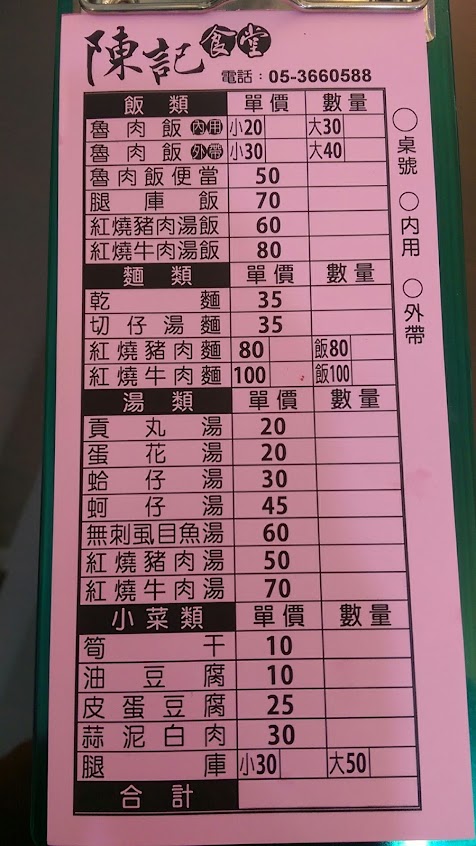 陳記食堂
電話：05-3660588
飯類 單價 數量
魯肉飯 內用 小20 大30
魯肉飯 外帶 小30 大40
魯肉飯便當 50
腿庫飯 70
紅燒豬肉湯飯 60
紅燒牛肉湯飯 80
麵類 單價 數量
乾麵 35
切仔湯麵 35
紅燒豬肉麵 80 飯80
紅燒牛肉麵 100 飯100
湯類 單價 數量
貢丸湯 20
蛋花湯 20
蛤仔湯 30
蚵仔湯 45
無刺虱目魚湯 60
紅燒豬肉湯 50
紅燒牛肉湯 70
小菜類 單價 數量
筍干 10
油豆腐 10
皮蛋豆腐 25
蒜泥白肉 30
腿庫 小30 大50
合計
○桌號 ○內用 ○外帶